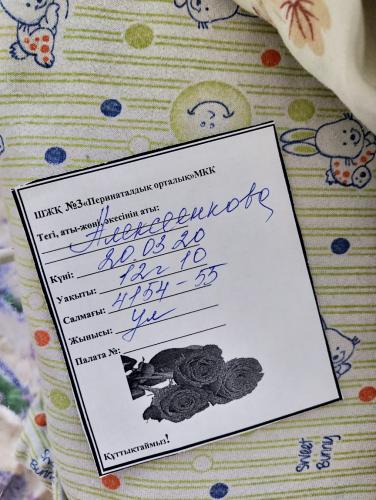 ШЖҚ №3 «Перинаталдық орталық» МКК
Тегі, аты-жөні, әкесінің аты:
Алексеенкова
Күні: 20 03 20
Уақыты: 12 ч 10
Салмағы: 4154 - 55
Жынысы: ұл
Палата №:
Құттықтаймыз!
Sweet
Bunny